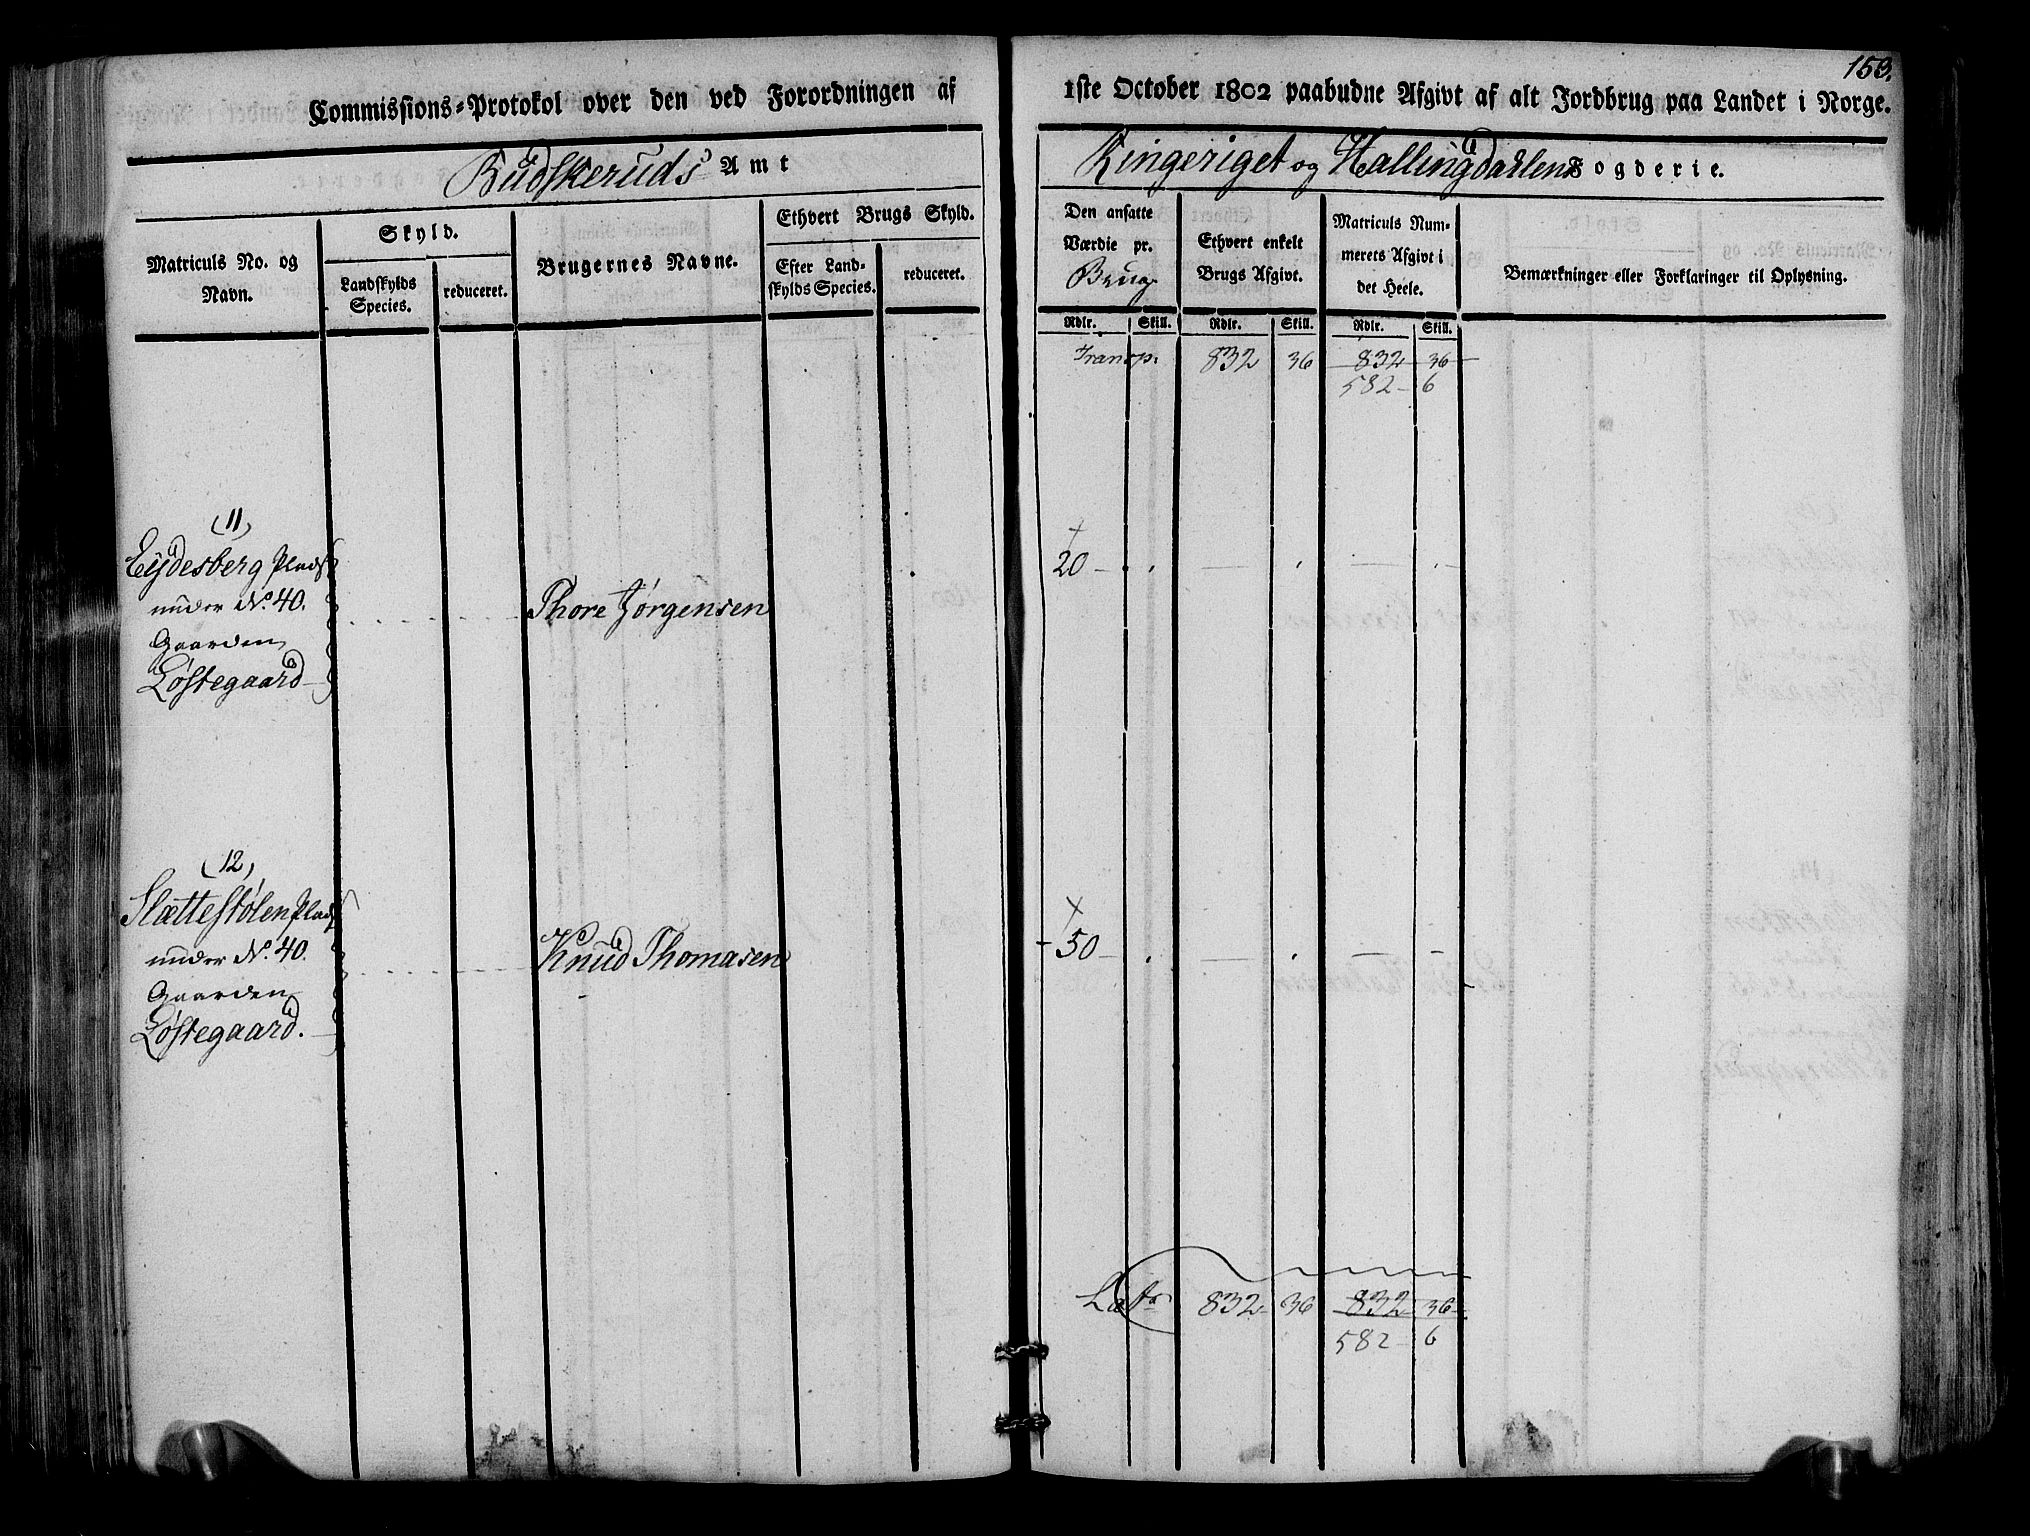 153.
Commissions-Protokol over den ved Forordningen af 1ste October 1802 paabudne Afgivt af alt Jordbrug paa Landet i Norge.
Budskeruds Amt
Ringeriget og Hallingdahlens Fogderie.
Matriculs No. og Navn.
Skyld.
Landskylds Species.
reduceret.
Brugernes Navne.
Ethvert Brugs Skyld.
Efter Landskylds Species.
reduceret.
Den ansatte Værdie pr. Brug
Ethvert enkelt Brugs Afgivt.
Matriculs Nummerets Afgivt i det Heele.
Bemærkninger eller Forklaringer til Oplysning.
Rdlr. Skill. Rdlr. Skill. Rdlr. Skill.
Transp. 832 36 832 36
582 - 6
(11)
Eijdesberg Plads
under No. 40.
Gaarden
Løstegaard
Thore Jørgensen
20
(12)
Slættestølen Plads
under No. 40.
Gaarden
Løstegaard.
Knud Thomasen
50
Lat. 832 36 832 36
582 6